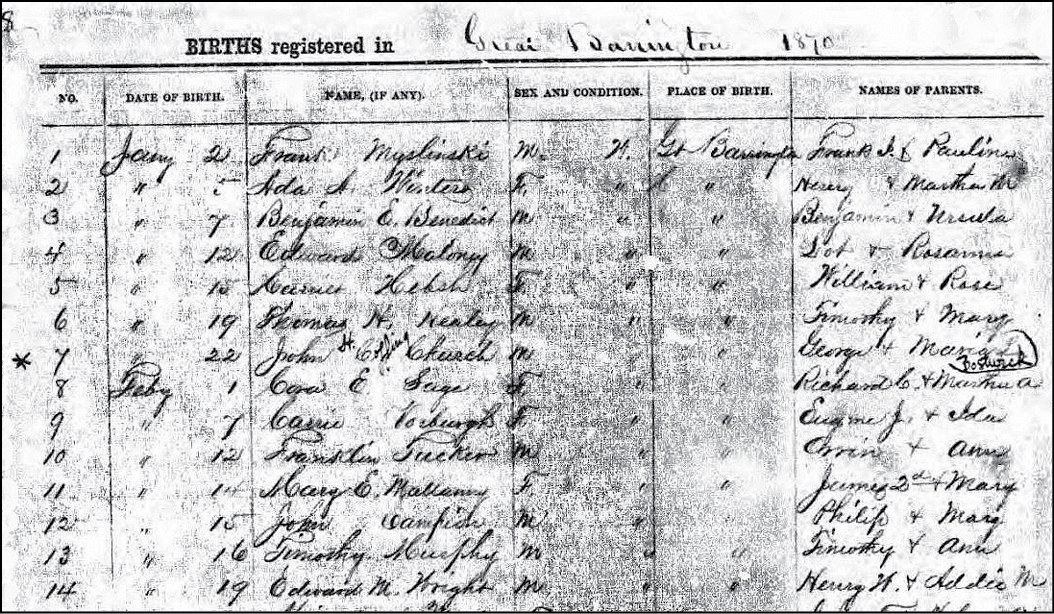 8
BIRTHS registered in Great Barrington 1870
NO. DATE OF BIRTH. NAME, (IF ANY). SEX AND CONDITION. PLACE OF BIRTH. NAMES OF PARENTS.
1 Jany 2 Frank Myslinski M. W. Gt Barrington Frank J. & Pauline
2 " 5 Ada A. Winters F. " " Henry & Martha M
3 " 7 Benjamin E. Benedict M " " Benjamin & Ursula
4 " 12 Edward Maloney M " " & Rosanna
5 " 15 F. " " William & Rose
6 " 19 Thomas H. Healey M " " Timothy & Mary
* 7 " 22 John H. Church M " " George &
Bostwick
8 Feby 1 Cora E Sage F " " Richard C. & Martha A
9 " 7 Carrie Vosburgh F " " Eugene J. & Ida
10 " 12 Franklin Tucker M " " & Ann
11 " 14 Mary E. F. " " James 2d & Mary
12 " 15 John Campion M " Philip & Mary
13 " 16 Timothy Murphy M " " Timothy & Ann
14 " 19 Edward M. Wright M " " Henry W. & Addie M